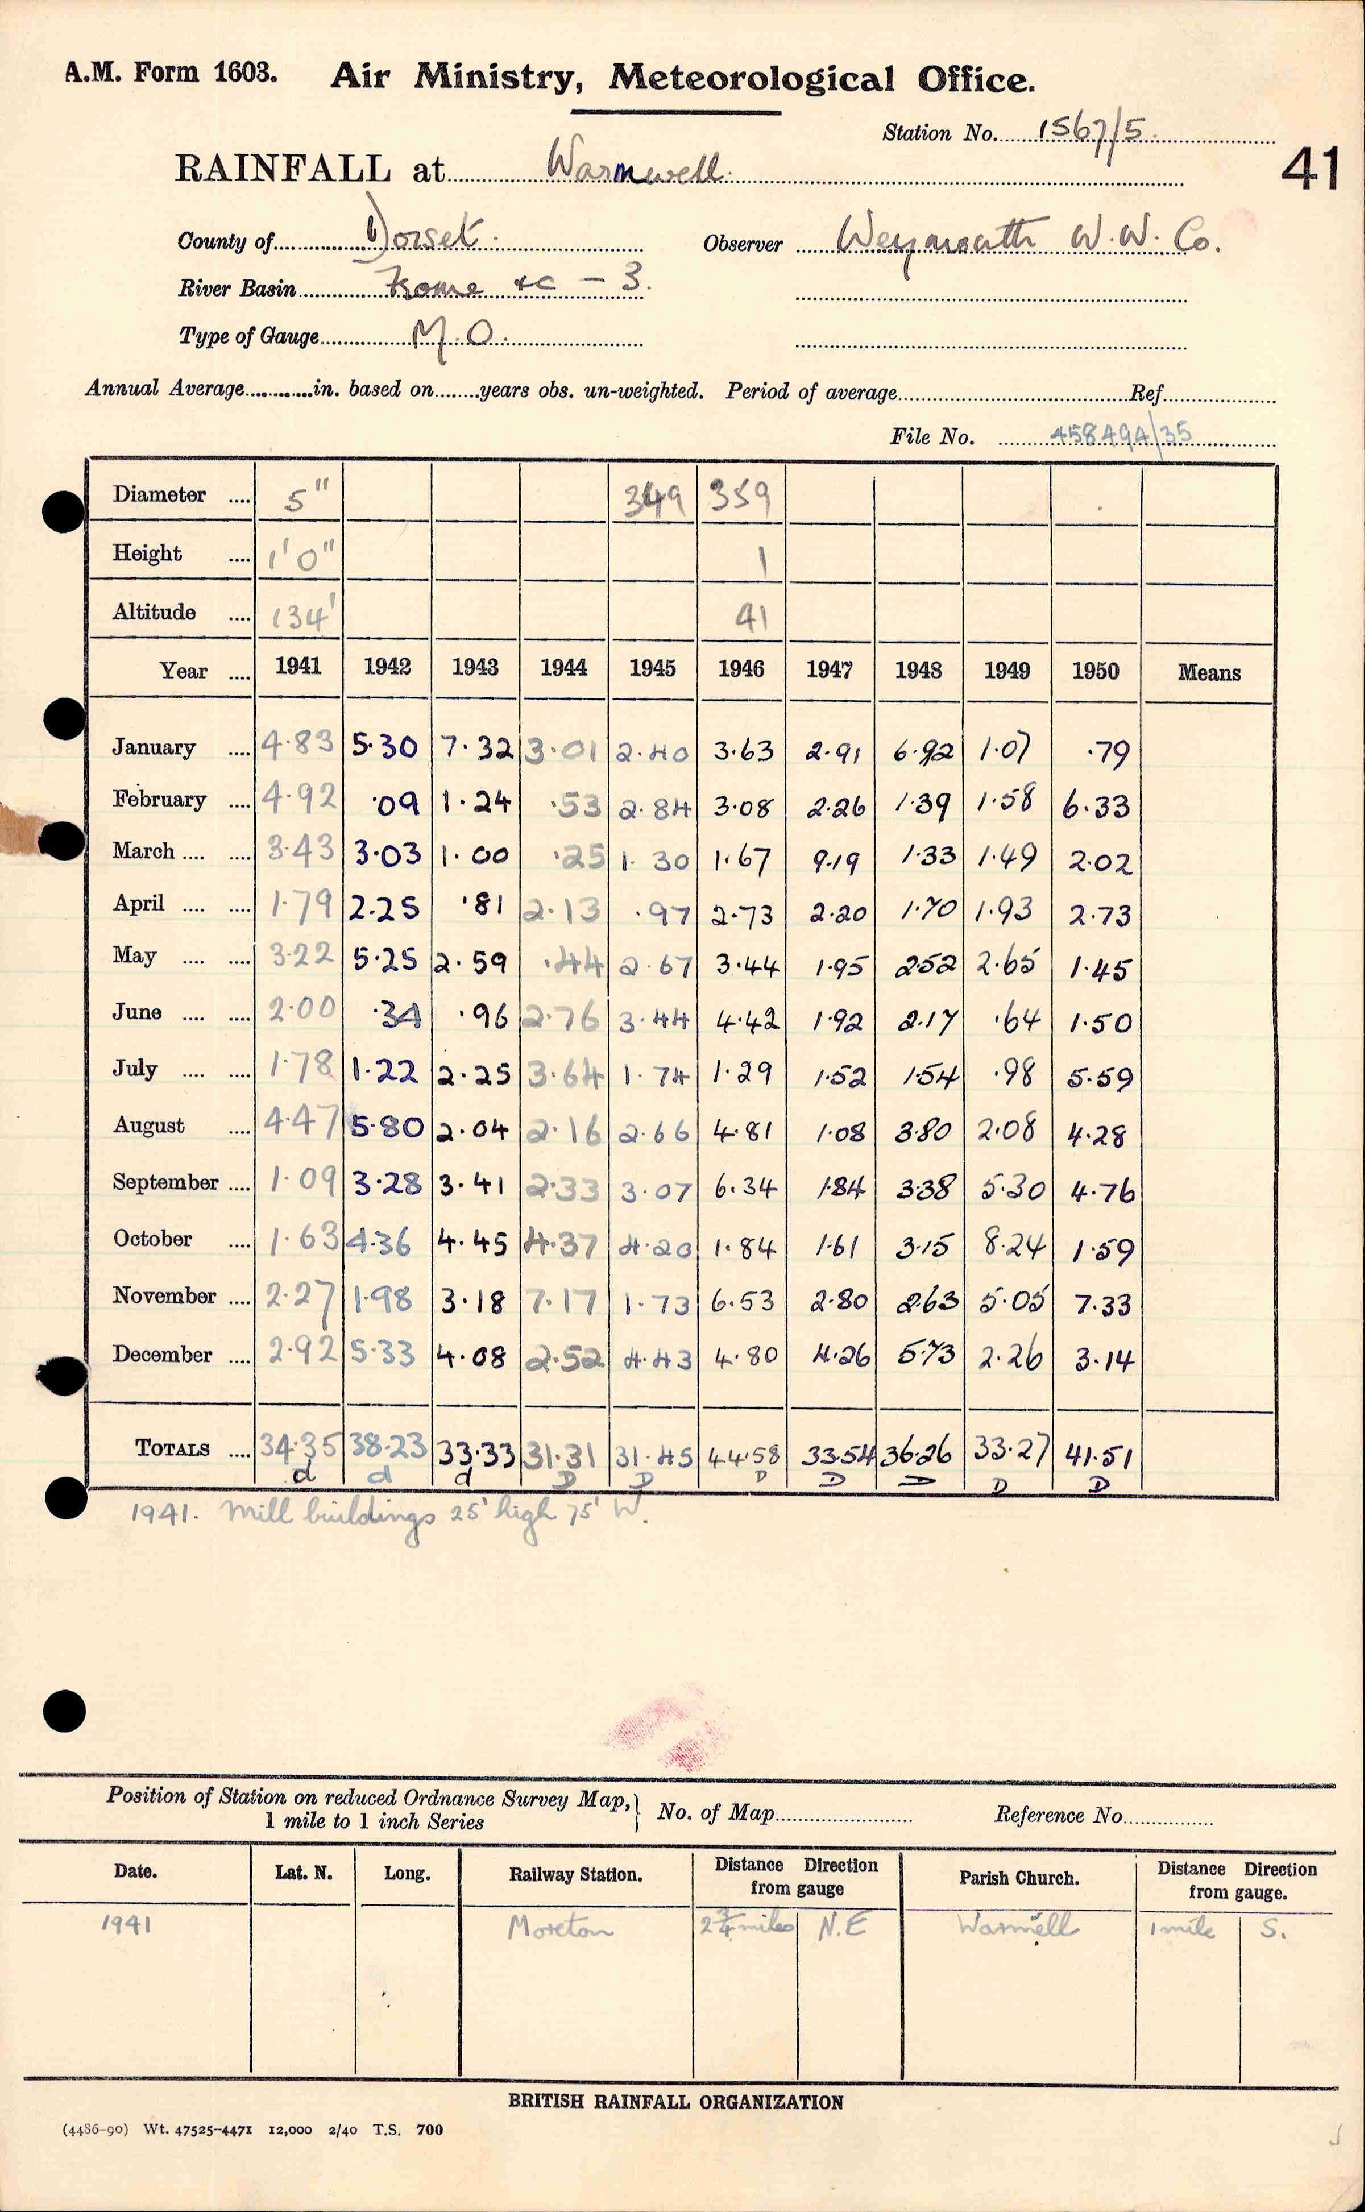 A.M. Form 1603. Air Ministry, Meteorological Office.
Station No. 1567/5
41
RAINFALL at Warmwell.
County of Dorset. Observer Weymouth W.W. Co.
River Basin Frome &c - 3.
Type of Gauge M.O.
Annual Average in. based on years obs. un-weighted. Period of average Ref.
File No. 458494/35
Diameter .... 5" 349 359
Height .... 1'0" 1
Altitude .... 134' 41
Year .... 1941 1942 1943 1944 1945 1946 1947 1948 1949 1950 Means
January .... 4.83 5.30 7.32 3.01 2.40 3.63 2.91 6.92 1.07 .79
February .... 4.92 .09 1.24 .53 2.84 3.08 2.26 1.39 1.58 6.33
March .... .... 3.43 3.03 1.00 .25 1.30 1.67 9.19 1.33 1.49 2.02
April .... .... 1.79 2.25 .81 2.13 .97 2.73 2.20 1.70 1.93 2.73
May .... .... 3.22 5.25 2.59 .44 2.67 3.44 1.95 2.52 2.65 1.45
June .... .... 2.00 .34 .96 2.76 3.44 4.42 1.92 2.17 .64 1.50
July .... .... 1.78 1.22 2.25 3.64 1.74 1.29 1.52 1.54 .98 5.59
August .... 4.47 5.80 2.04 2.16 2.66 4.81 1.08 3.80 2.08 4.28
September .... 1.09 3.28 3.41 2.33 3.07 6.34 1.84 3.38 5.30 4.76
October .... 1.63 4.36 4.45 4.37 4.20 1.84 1.61 3.15 8.24 1.59
November .... 2.27 1.98 3.18 7.17 1.73 6.53 2.80 2.63 5.05 7.33
December .... 2.92 5.33 4.08 2.52 4.43 4.80 4.26 5.73 2.26 3.14
TOTALS .... 34.35 38.23 33.33 31.31 31.45 44.58 33.54 36.26 33.27 41.51
d d d D D D D D D D
1941. Mill buildings 25' high 75' W.
Position of Station on reduced Ordnance Survey Map, } No. of Map Reference No.
1 mile to 1 inch Series
Date. Lat. N. Long. Railway Station. Distance Direction from gauge Parish Church. Distance Direction from gauge.
1941 Moreton 2¾ miles N.E Warmell 1 mile S.
BRITISH RAINFALL ORGANIZATION
(4486-90) Wt. 47525-4471 12,000 2/40 T.S. 700